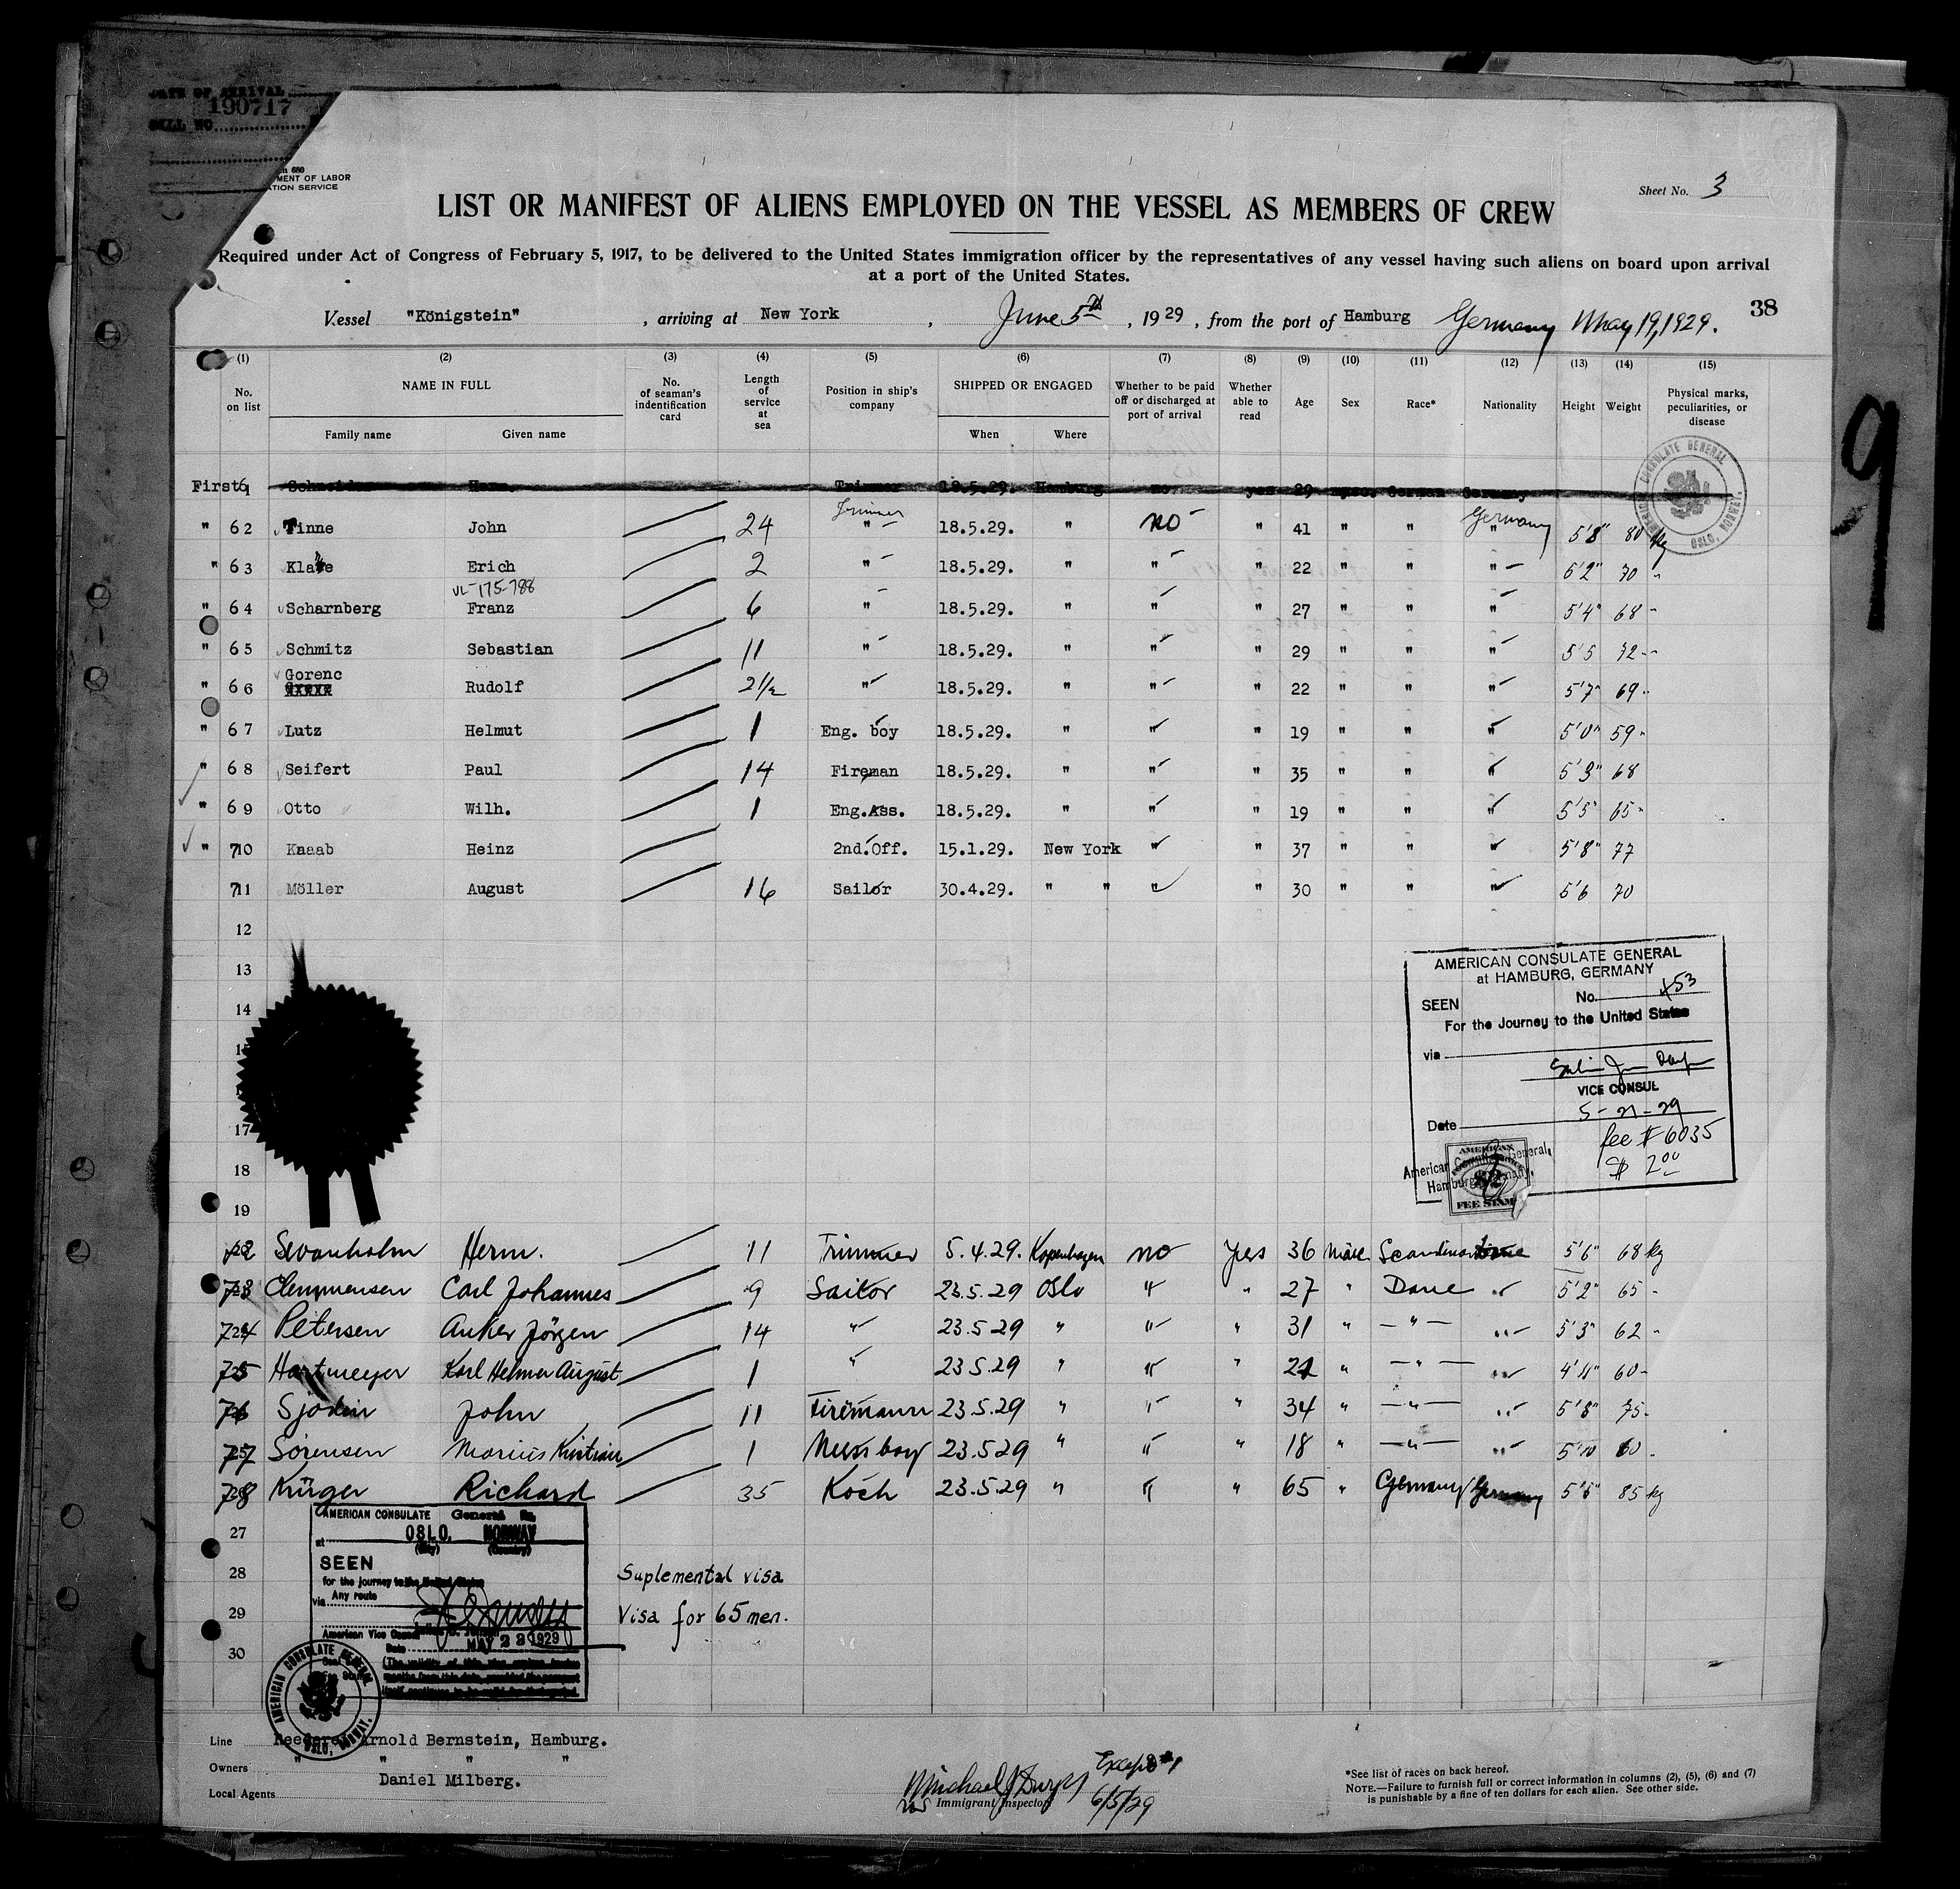 DATE OF ARRIVAL
190717
BILL NO
m 680
MENT OF LABOR
ATION SERVICE
Sheet No. 3
LIST OR MANIFEST OF ALIENS EMPLOYED ON THE VESSEL AS MEMBERS OF CREW
Required under Act of Congress of February 5, 1917, to be delivered to the United States immigration officer by the representatives of any vessel having such aliens on board upon arrival
at a port of the United States.
38
Vessel "Königstein" , arriving at New York , June 5th , 1929 , from the port of Hamburg Germany May 19, 1929.
9
(1) (2) (3) (4) (5) (6) (7) (8) (9) (10) (11) (12) (13) (14) (15)
No. on list
NAME IN FULL
Family name Given name
No. of seaman's indentification card
Length of service at sea
Position in ship's company
SHIPPED OR ENGAGED
When Where
Whether to be paid off or discharged at port of arrival
Whether able to read
Age
Sex
Race*
Nationality
Height
Weight
Physical marks, peculiarities, or disease
First 61 Schneider Herm. Trimmer 18.5.29. Hamburg no yes 29 masc. German Germany
" 62 Tinne John 24 Trimmer " 18.5.29. " no " 41 " " Germany " 5'8" 80 kg
" 63 Erich 2 " 18.5.29. " " " 22 " " " 6'2" 70 "
VL-175-788
" 64 Scharnberg Franz 6 " 18.5.29. " " " 27 " " " 5'4" 68 "
" 65 Schmitz Sebastian 11 " 18.5.29. " " " 29 " " " 5'5 72 "
" 66 Gorenc Rudolf 2 1/2 " 18.5.29. " " " 22 " " " 5'7" 69 "
" 67 Lutz Helmut 1 Eng. boy 18.5.29. " " " 19 " " " 5'0" 59 "
" 68 Seifert Paul 14 Fireman 18.5.29. " " " 35 " " " 5'9" 68
" 69 Otto Wilh. 1 Eng.Ass. 18.5.29. " " " 19 " " " 5'5" 65 "
" 70 Knaab Heinz 2nd.Off. 15.1.29. New York " " 37 " " " 5'8" 77
71 Möller August 16 Sailor 30.4.29. " " " " 30 " " " 5'6 70
12
13
14
17
18
19
AMERICAN CONSULATE GENERAL
at HAMBURG, GERMANY
SEEN No. 453
For the Journey to the United States
via
VICE CONSUL
Date 5-21-29
fee # 6035
$ 2.00
American Consulate General,
Hamburg, Germany.
AMERICAN
$2
FEE STAMP
72 Swanholm Herm. 11 Trimmer 5.4.29. Kopenhagen no yes 36 male 5'6" 68 kg
73 Clemmensen Carl Johannes 9 Sailor 23.5.29 Oslo " " 27 " Dane " 5'2" 65 "
74 Petersen Anker Jörgen 14 " 23.5.29 " " " 31 " " " 5'3" 62 "
75 Hartmeyer Karl Helmer August 1 " 23.5.29 " " " 21 " " " 4'11" 60 "
76 Sjödin John 11 Firemann 23.5.29 " " " 34 " " " 5'8" 75 "
77 Sörensen Marius Kristian 1 Messboy 23.5.29 " " " 18 " " " 5'10 60 "
78 Krüger Richard 35 Koch 23.5.29 " " " 65 " Germany Germany 5'5" 85 kg
27
28
29
30
AMERICAN CONSULATE General
at OSLO. NORWAY
(City) (Country)
SEEN
for the journey to the United States
via Any route
American Vice Consul
Date MAY 23 1929
AMERICAN CONSULATE GENERAL
OSLO, NORWAY.
Suplemental visa
Visa for 65 men.
Line Reederei Arnold Bernstein, Hamburg.
Owners " " " "
Local Agents Daniel Milberg.
Except #1
6/5/29
Immigrant Inspector
*See list of races on back hereof.
NOTE.—Failure to furnish full or correct information in columns (2), (5), (6) and (7)
is punishable by a fine of ten dollars for each alien. See other side.